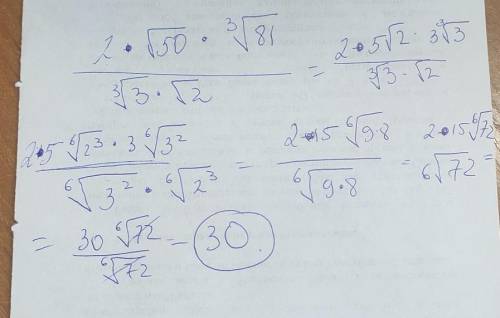 (2 • √50 • ∛81) / (∛3 • √2) = (2 • 5√2 • 3∛3) / (∛3 • √2)
(2•5 ⁶√2³ • 3 ⁶√3²) / (⁶√3² • ⁶√2³) = (2•15 ⁶√9·8) / (⁶√9•8) = (2•15 ⁶√72) / (⁶√72) =
= (30 ⁶√72) / (⁶√72) = 30.